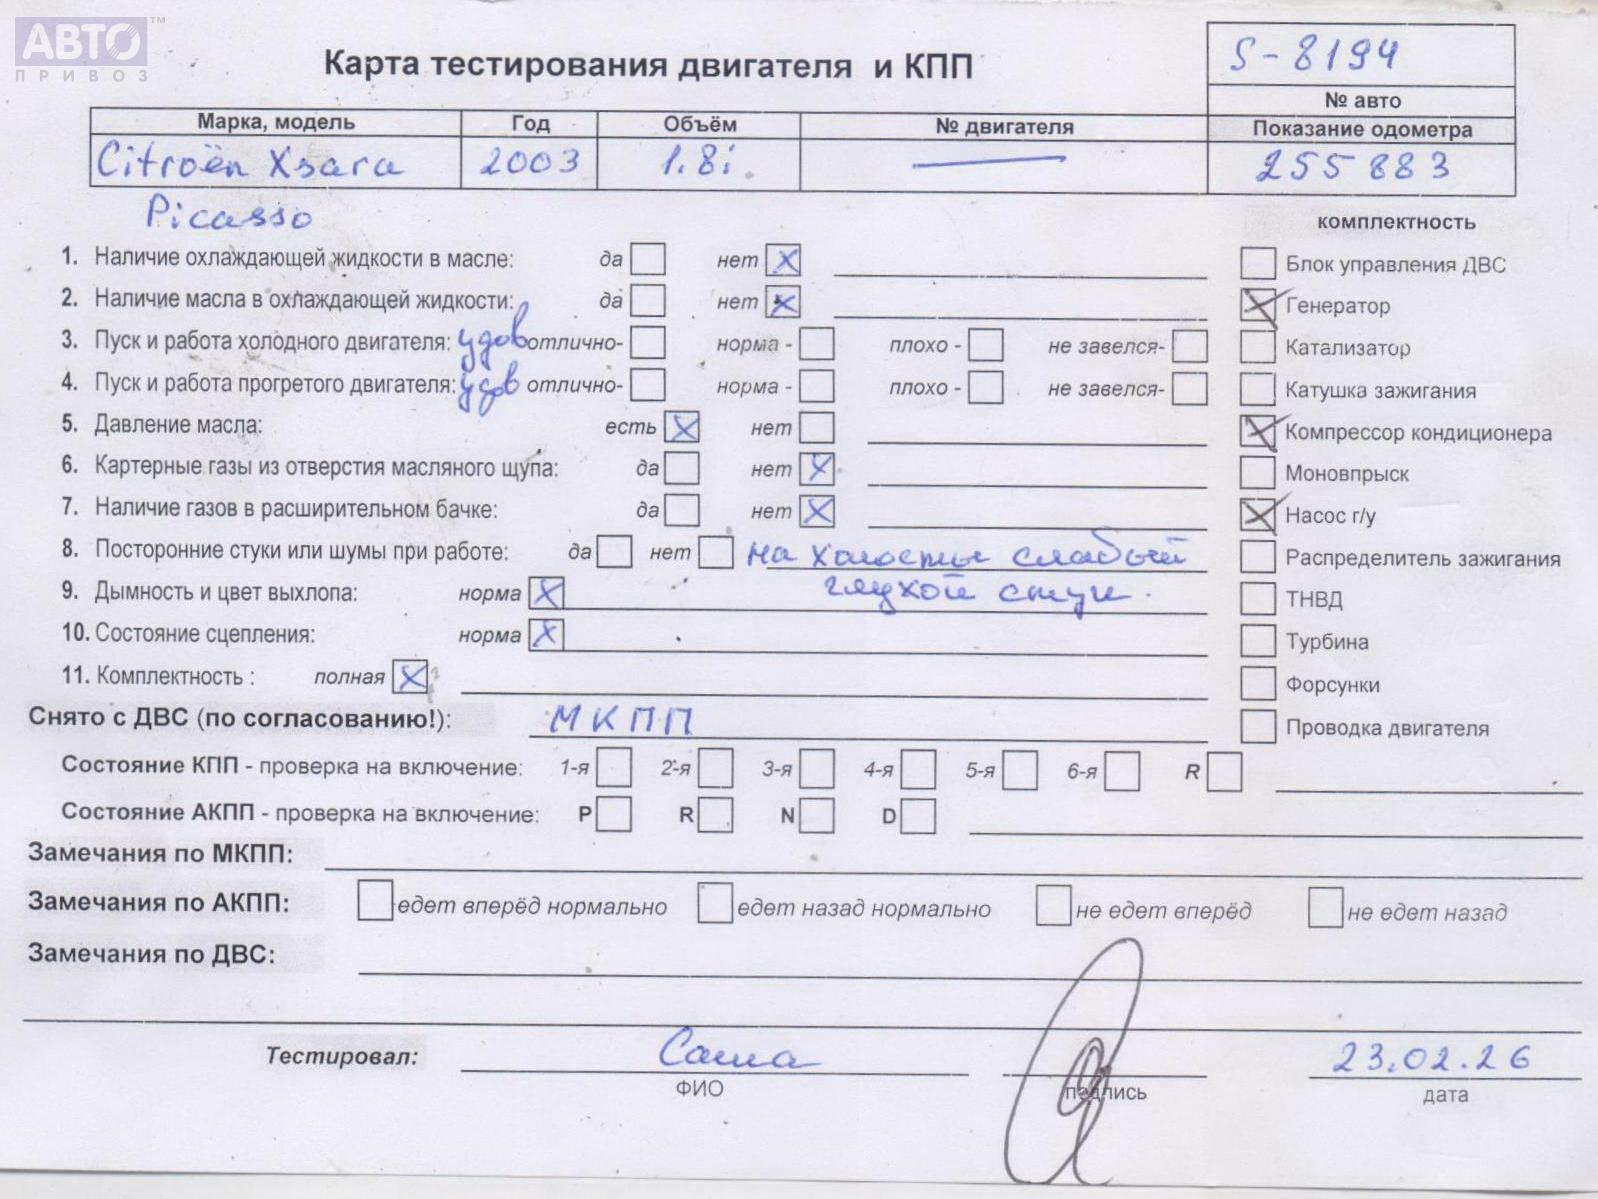 АВТО™
ПРИВОЗ
Карта тестирования двигателя и КПП
S-8194
№ авто
Марка, модель Год Объём № двигателя Показание одометра
Citroën Xsara 2003 1.8i — 255883
Picasso
комплектность
1. Наличие охлаждающей жидкости в масле: да нет X
Блок управления ДВС
2. Наличие масла в охлаждающей жидкости: да нет X
X Генератор
3. Пуск и работа холодного двигателя: удов отлично- норма - плохо - не завелся-
Катализатор
4. Пуск и работа прогретого двигателя: удов отлично- норма - плохо - не завелся-
Катушка зажигания
5. Давление масла: есть X нет
X Компрессор кондиционера
6. Картерные газы из отверстия масляного щупа: да нет X
Моновпрыск
7. Наличие газов в расширительном бачке: да нет X
X Насос г/у
8. Посторонние стуки или шумы при работе: да нет на холосты слабый
Распределитель зажигания
9. Дымность и цвет выхлопа: норма X глухой стук.
ТНВД
10. Состояние сцепления: норма X
Турбина
11. Комплектность : полная X
Форсунки
Снято с ДВС (по согласованию!): МКПП
Проводка двигателя
Состояние КПП - проверка на включение: 1-я 2-я 3-я 4-я 5-я 6-я R
Состояние АКПП - проверка на включение: P R N D
Замечания по МКПП:
Замечания по АКПП: едет вперёд нормально едет назад нормально не едет вперёд не едет назад
Замечания по ДВС:
Тестировал: Саша 23.02.26
ФИО подпись дата